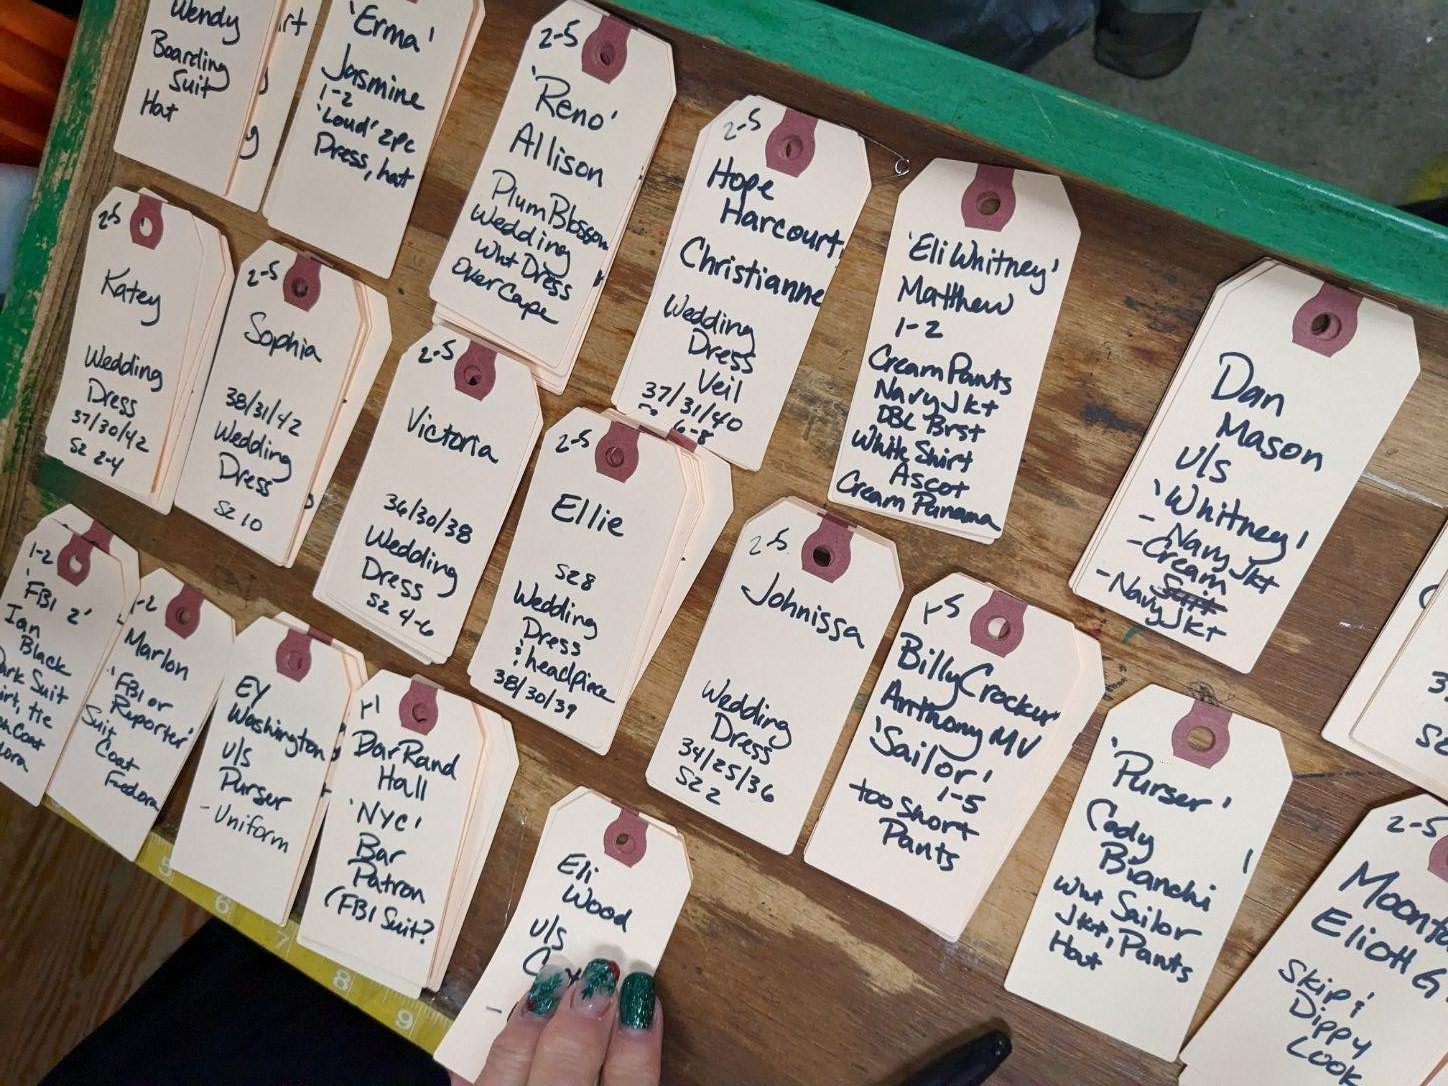 Wendy
Boarding
Suit
Hat
'Erma'
Jasmine
1-2
'Loud' 2pc
Dress, hat
2-5
'Reno'
Allison
Plum Blossom
Wedding
Wht Dress
Over Cape
2-5
Hope
Harcourt
Christianne
Wedding
Dress
Veil
37/31/40
6-8
'Eli Whitney'
Matthew
1-2
Cream Pants
Navy Jkt
DBL Brst
White Shirt
Ascot
Cream Panama
Dan
Mason
u/s
'Whitney'
- Navy Jkt
- Cream
- Navy Jkt
2-5
Katey
Wedding
Dress
37/30/42
Sz 2-4
2-5
Sophia
38/31/42
Wedding
Dress
Sz 10
2-5
Victoria
36/30/38
Wedding
Dress
Sz 4-6
2-5
Ellie
Sz 8
Wedding
Dress
& headpiece
38/30/39
2-5
Johnissa
Wedding
Dress
34/25/36
Sz 2
1-5
Billy Crocker
Anthony MV
'Sailor'
1-5
too short
Pants
'Purser'
Cody
Bianchi
Wht Sailor
Jkt, Pants
Hat
2-5
Eliott G
Skip &
Dippy
Look
1-2
'FBI 2'
Ian
Black
Suit
tie
Coat
-2
Marlon
'FBI or
Reporter'
Suit
Coat
Fedora
EY
Washington
u/s
Purser
- Uniform
1-1
Bar Rand
Hall
'NYC'
Bar
Patron
(FBI Suit?
Eli
Wood
u/s
5
6
7
8
9